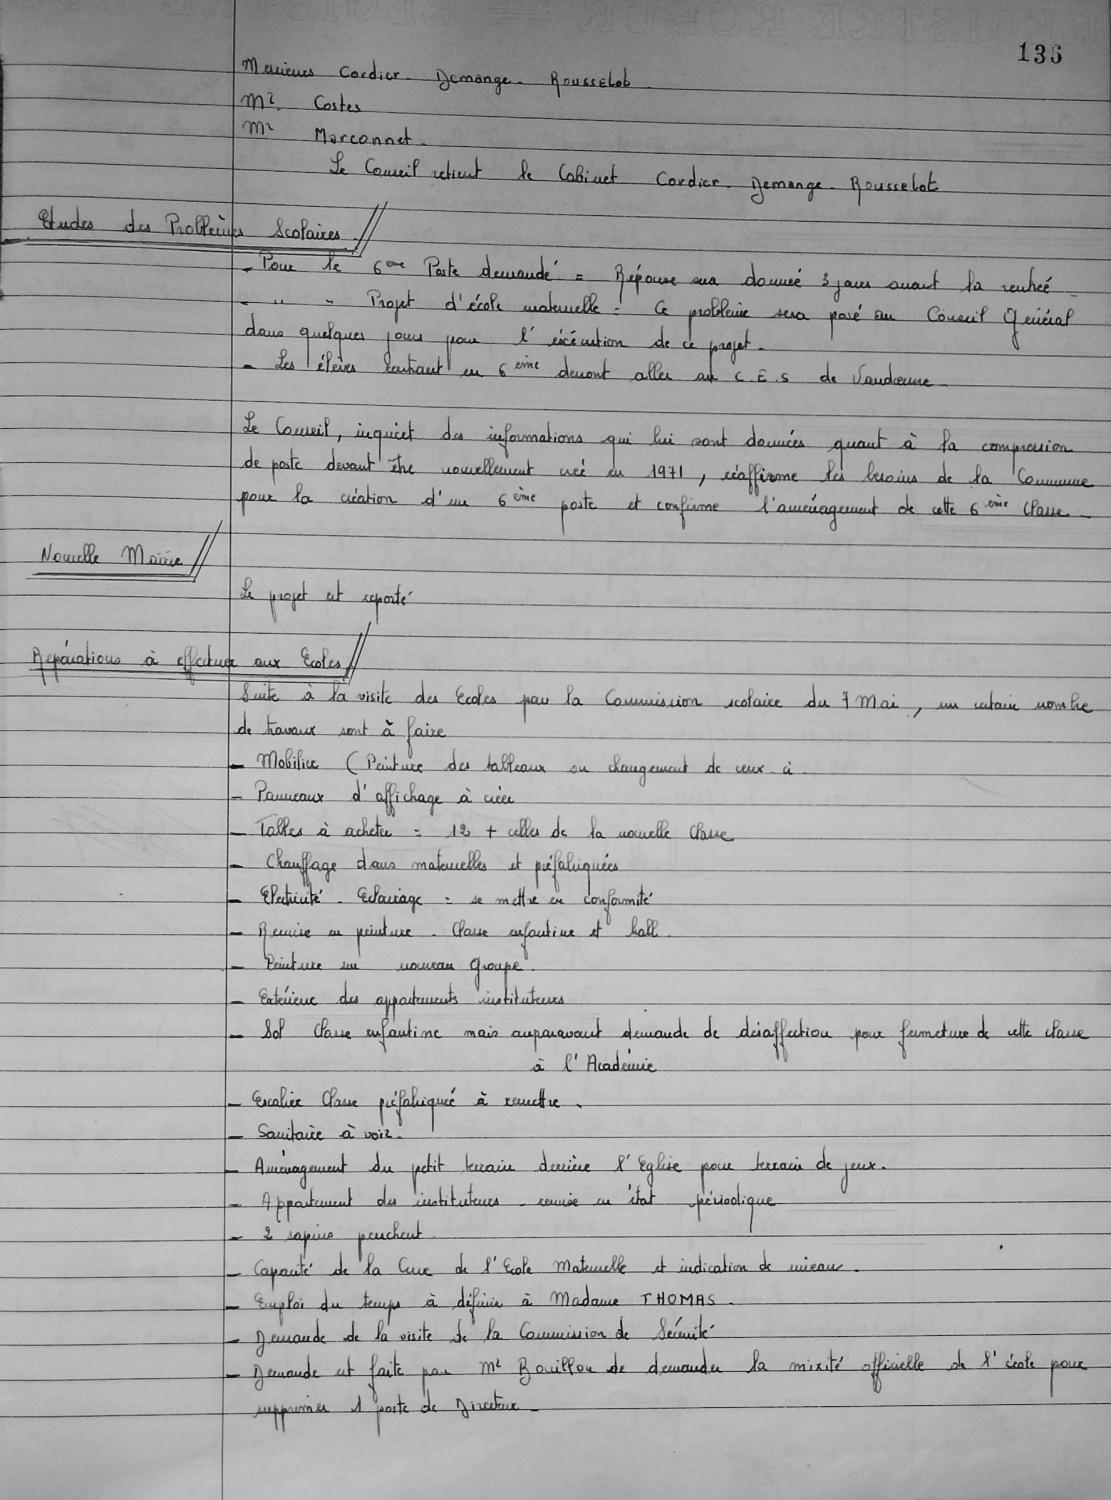 135
Messieurs Cordier - Demange - Rousselot
Mr Costes
Mr Marconnet -
Le Conseil retient le Cabinet Cordier - Demange - Rousselot
Etudes des Problèmes Scolaires
- Pour le 6eme Poste demandé = Réponse sera donnée 3 jours avant la rentrée -
- " " Projet d'école maternelle = Ce problème sera posé au Conseil Général
dans quelques jours pour l'éxécution de ce projet -
- Les élèves entrant en 6ème devront aller au C.E.S de Vandœuvre -
Le Conseil, inquiet des informations qui lui sont données quant à la compression
de poste devant être nouvellement créé en 1971, réaffirme les besoins de la Commune
pour la création d'un 6ème poste et confirme l'aménagement de cette 6ème Classe -
Nouvelle Mairie
Le projet est reporté
Réparations à effectuer aux Ecoles
Suite à la visite des Ecoles par la Commission scolaire du 7 Mai, un certain nombre
de travaux sont à faire
- Mobilier (Peinture des tableaux ou changement de ceux-ci -
- Panneaux d'affichage à créer
- Tables à acheter = 12 + celles de la nouvelle Classe
- Chauffage dans maternelles et préfabriquées
- Electricité - Eclairage : se mettre en conformité
- Remise en peinture - Classe enfantine et hall.
- Peinture sur nouveau Groupe.
- Extérieur des appartements instituteurs
- Sol Classe enfantine mais auparavant demande de désaffection pour fermeture de cette classe
à l'Académie
- Escalier Classe préfabriquée à remettre.
- Sanitaire à voir.
- Aménagement du petit terrain derrière l'Eglise pour terrain de jeux.
- Appartement des instituteurs - remise en état périodique
- 2 sapins penchent.
- Capacité de la Cuve de l'Ecole Maternelle et indication de niveau.
- Emploi du temps à définir à Madame THOMAS.
- Demande de la visite de la Commission de Sécurité
- Demande est faite par Mr Bouillon de demander la mixité officielle de l'école pour
supprimer 1 poste de Directeur -